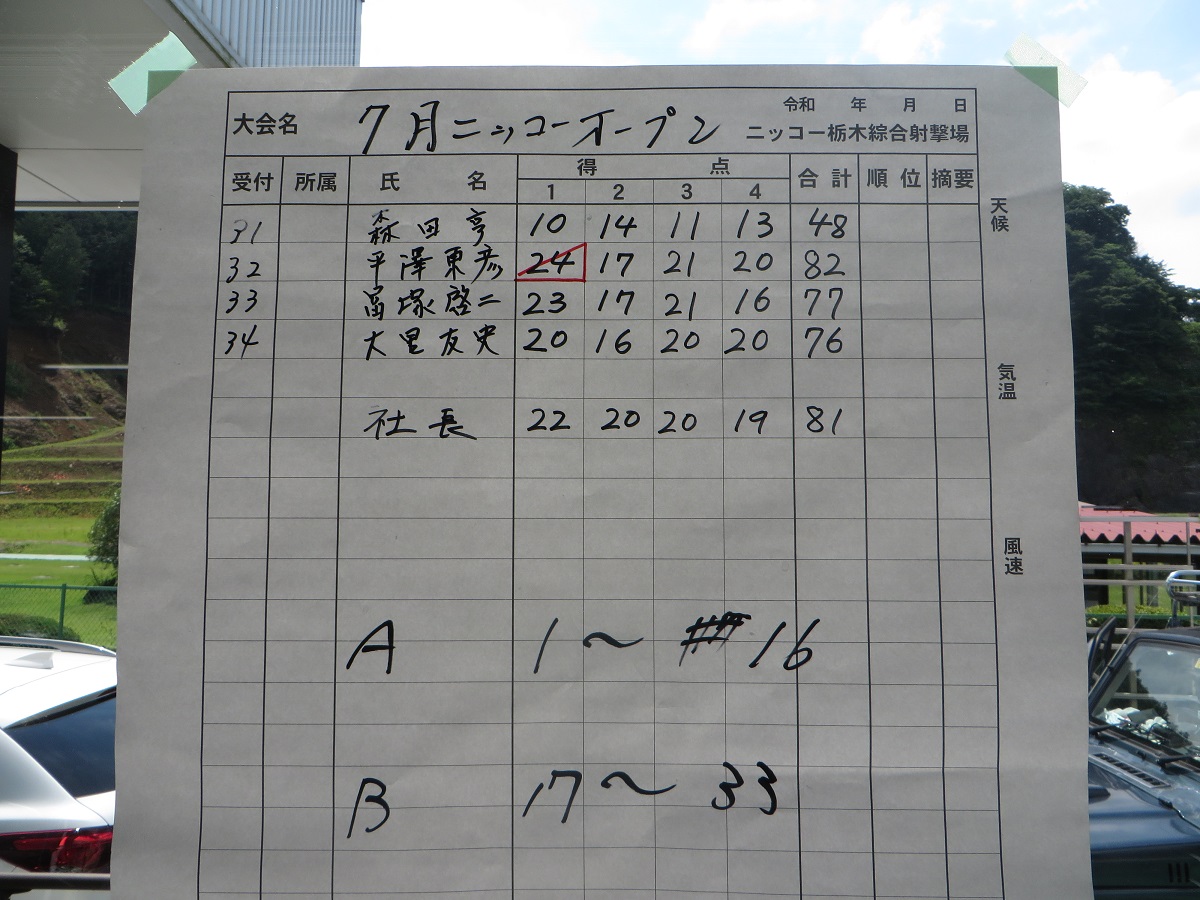 令和 年 月 日
大会名 7月ニッコーオープン ニッコー栃木綜合射撃場
受付 所属 氏 名 得 点 合計 順位 摘要
1 2 3 4
天候
31 森田亨 10 14 11 13 48
32 平澤東彦 24 17 21 20 82
33 冨塚啓二 23 17 21 16 77
34 大里友史 20 16 20 20 76
気温
社長 22 20 20 19 81
風速
A 1〜 16
B 17〜33